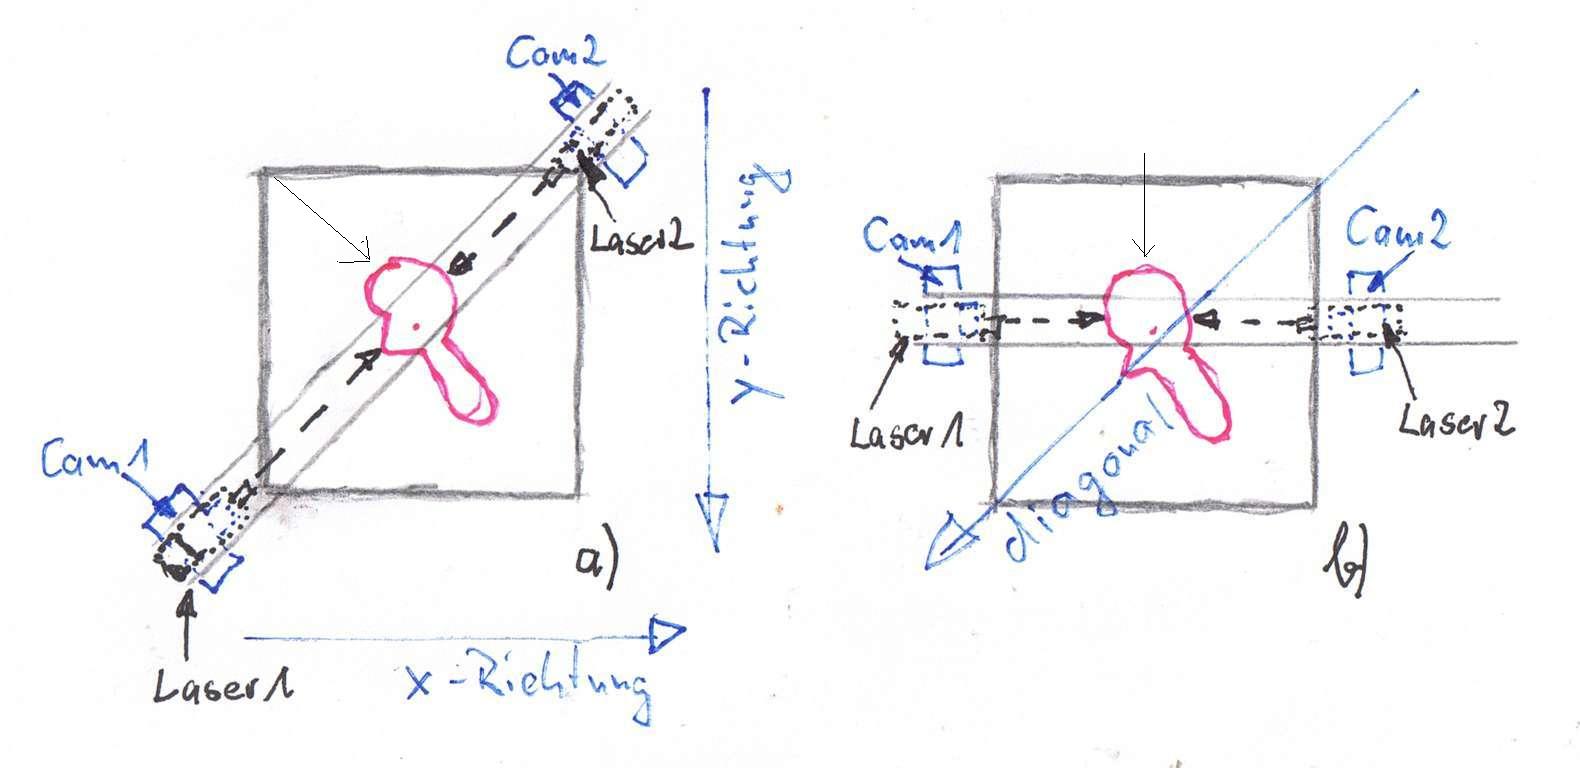 Cam2
Laser2
y-Richtung
Cam1
Laser1
x-Richtung
a)
Cam1
Cam2
Laser1
Laser2
diagonal
b)